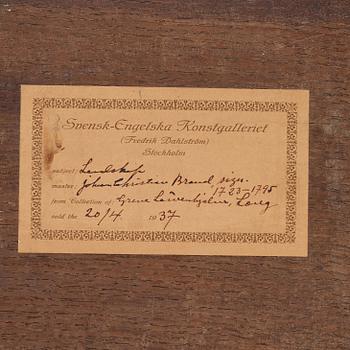 Svensk-Engelska Konstgalleriet
(Fredrik Dahlström)
Stockholm
subject Landskap
master Johan Christian Brand sign.
1723-1795
from Collection of Greve Löwenhjelm, Long
sold the 20/4 1937